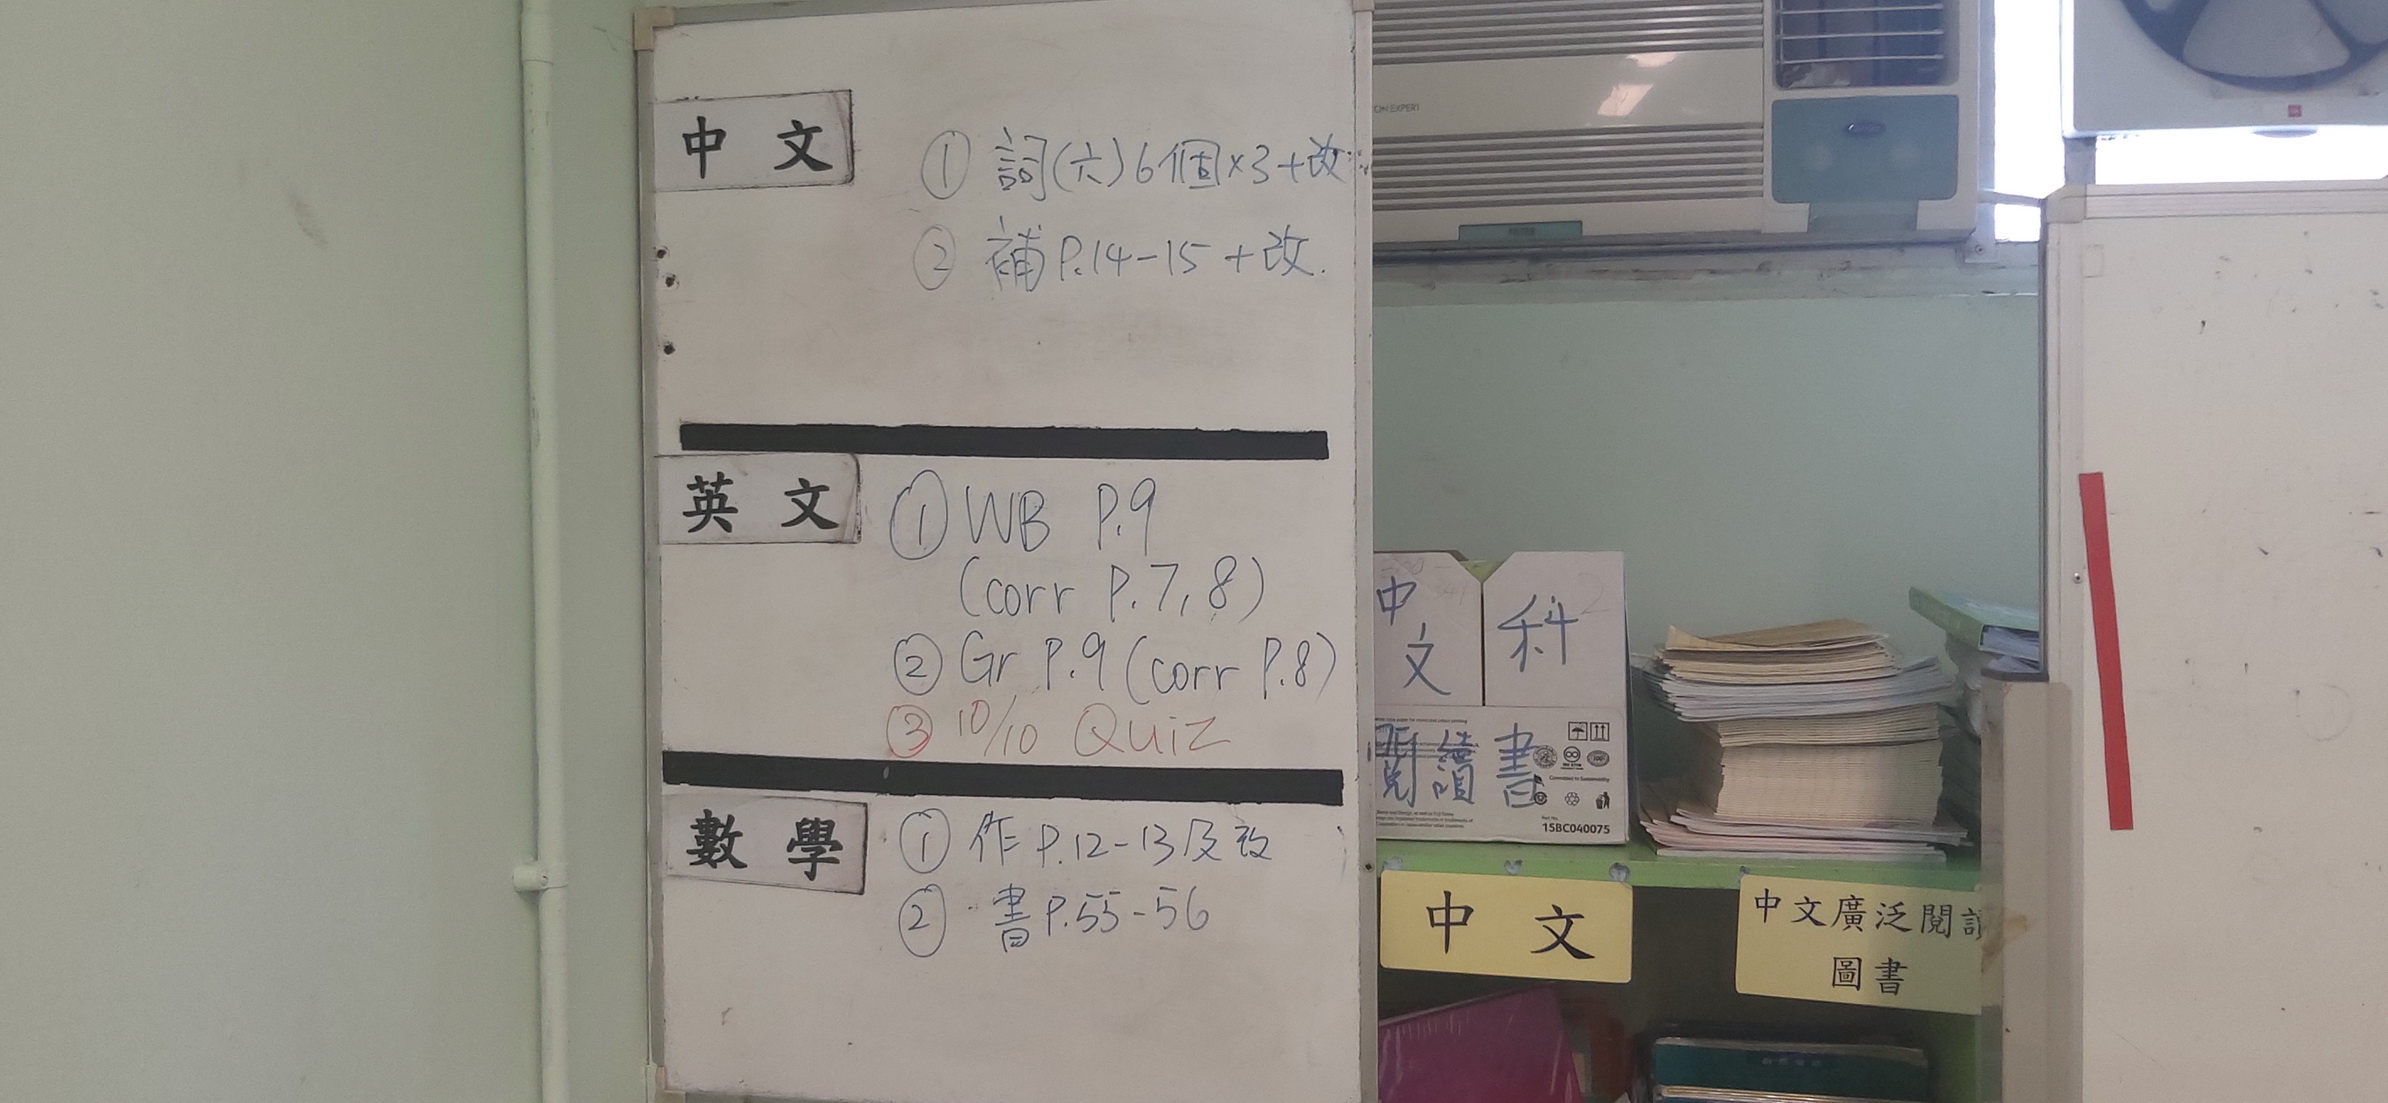 中文
① 詞(六)6個×3+改
② 補P.14-15+改.
英文
① WB P.9
(corr P.7,8)
② Gr P.9 (corr P.8)
③ 10/10 QUiZ
數學
① 作P.12-13及改
② 書P.55-56
中文
科
閱讀書
15BC040075
中文
中文廣泛閱讀
圖書